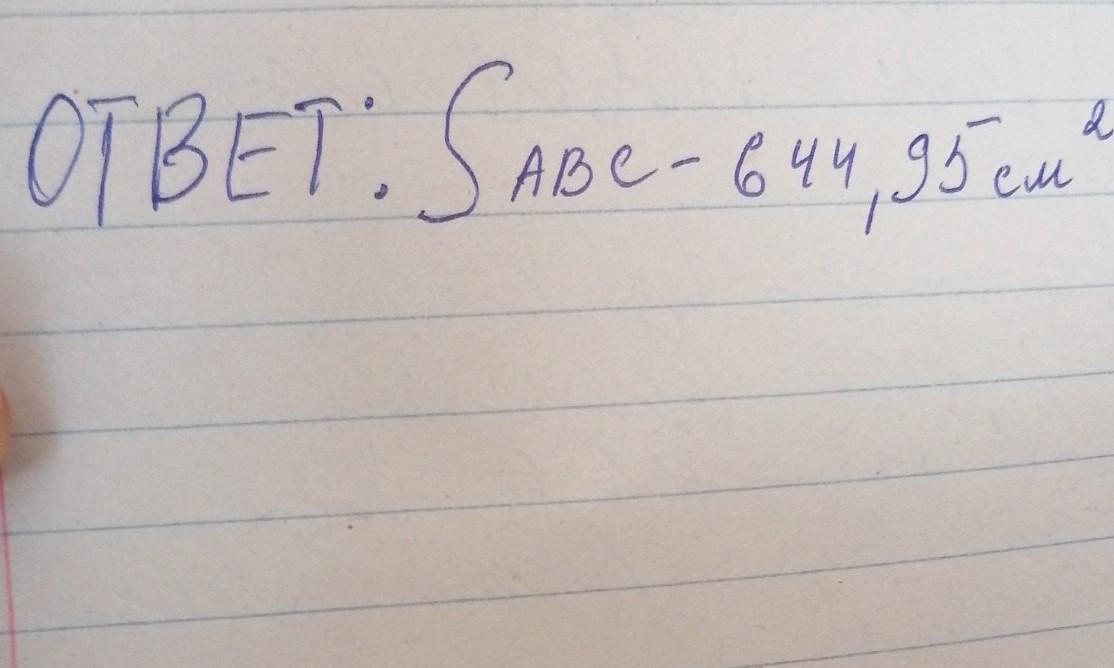 ОТВЕТ: S ABC - 644,95 см²